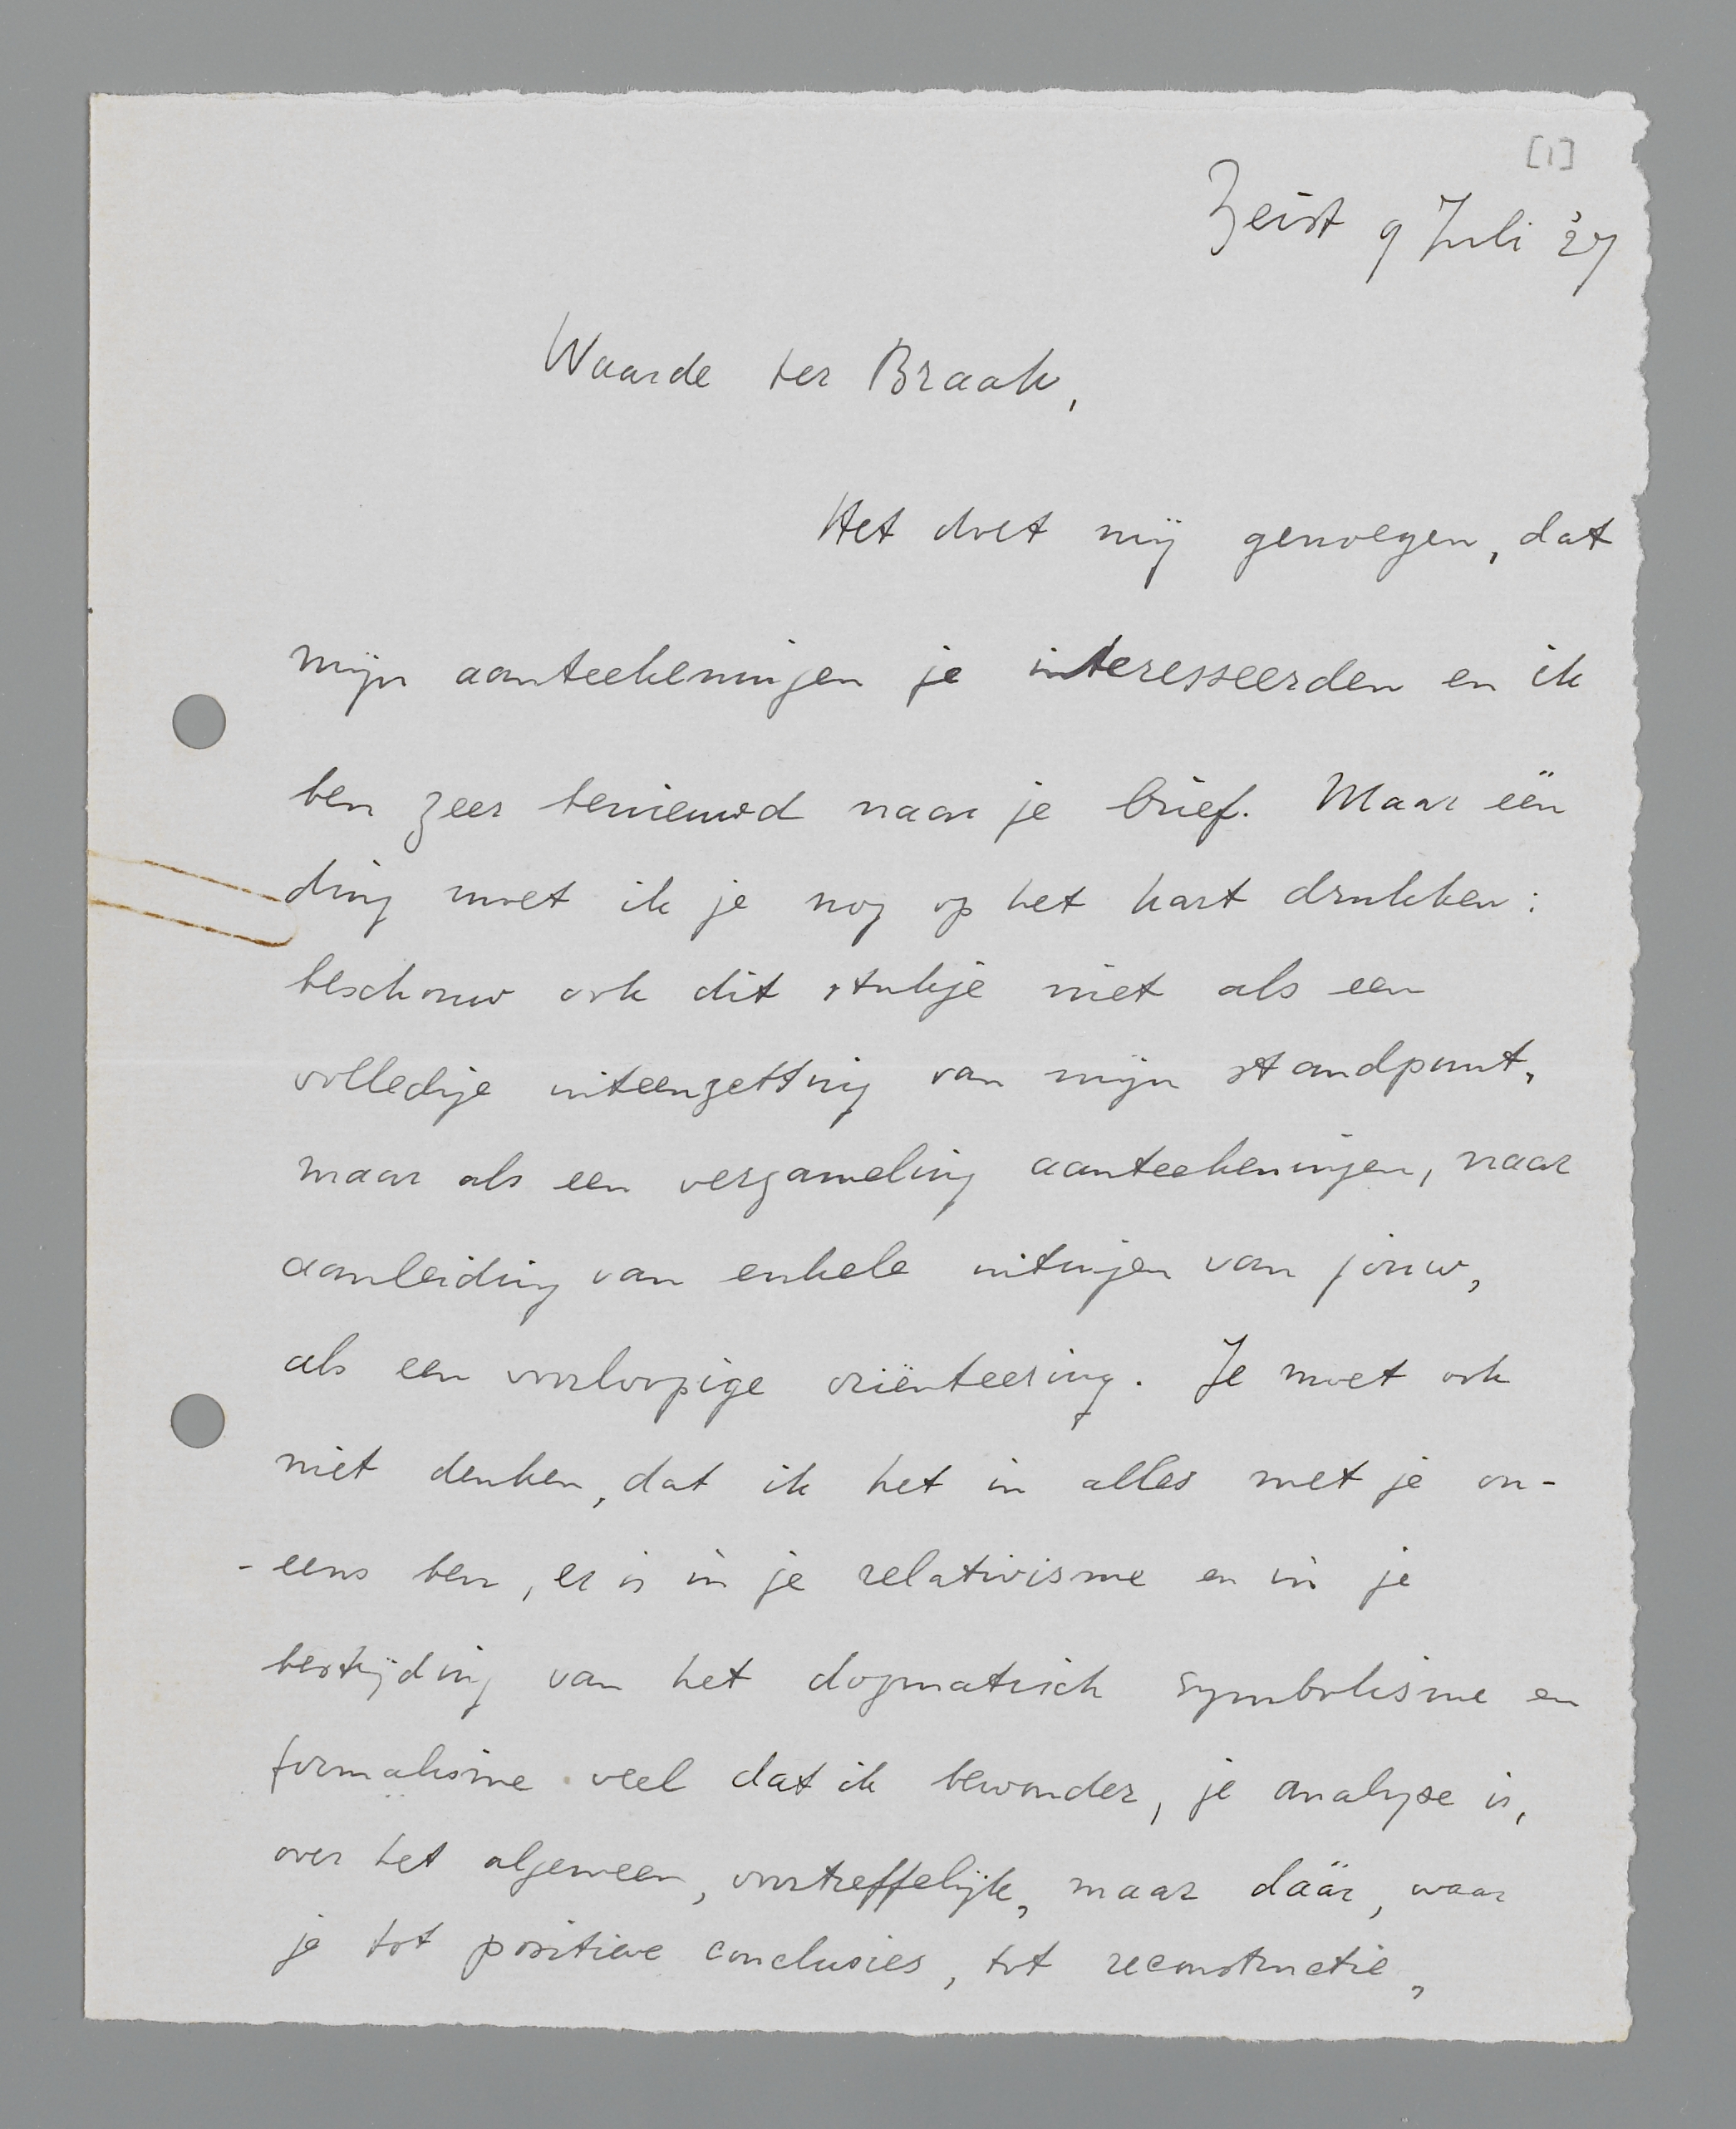 [1]
Zeist 9 Juli '27
Waarde ter Braak,
Het doet mij genoegen, dat
mijn aanteekeningen je interesseerden en ik
ben zeer benieuwd naar je brief. Maar één
ding moet ik je nog op het hart drukken:
beschouw ook dit stukje niet als een
volledige uiteenzetting van mijn standpunt,
maar als een verzameling aanteekeningen, naar
aanleiding van enkele uitingen van jouw,
als een voorloopige oriënteering. Je moet ook
niet denken, dat ik het in alles met je on-
-eens ben, er is in je relativisme en in je
bestrijding van het dogmatisch symbolisme en
formalisme veel dat ik bewonder, je analyse is,
over het algemeen, voortreffelijk, maar dáár, waar
je tot positieve conclusies, tot reconstructie,